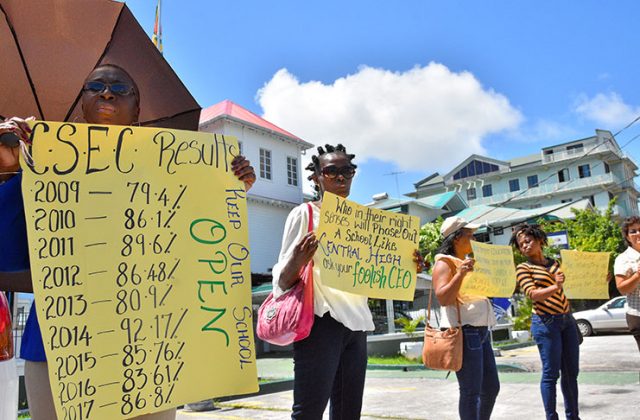 CSEC Results
2009 — 79.4%
2010 — 86.1%
2011 — 89.6%
2012 — 86.48%
2013 — 80.9%
2014 — 92.17%
2015 — 85.76%
2016 — 83.61%
2017 — 86.8%
KEEP OUR SCHOOL
OPEN
Who in their right
senses will Phase Out
A School Like
CENTRAL HIGH
ask your foolish CEO